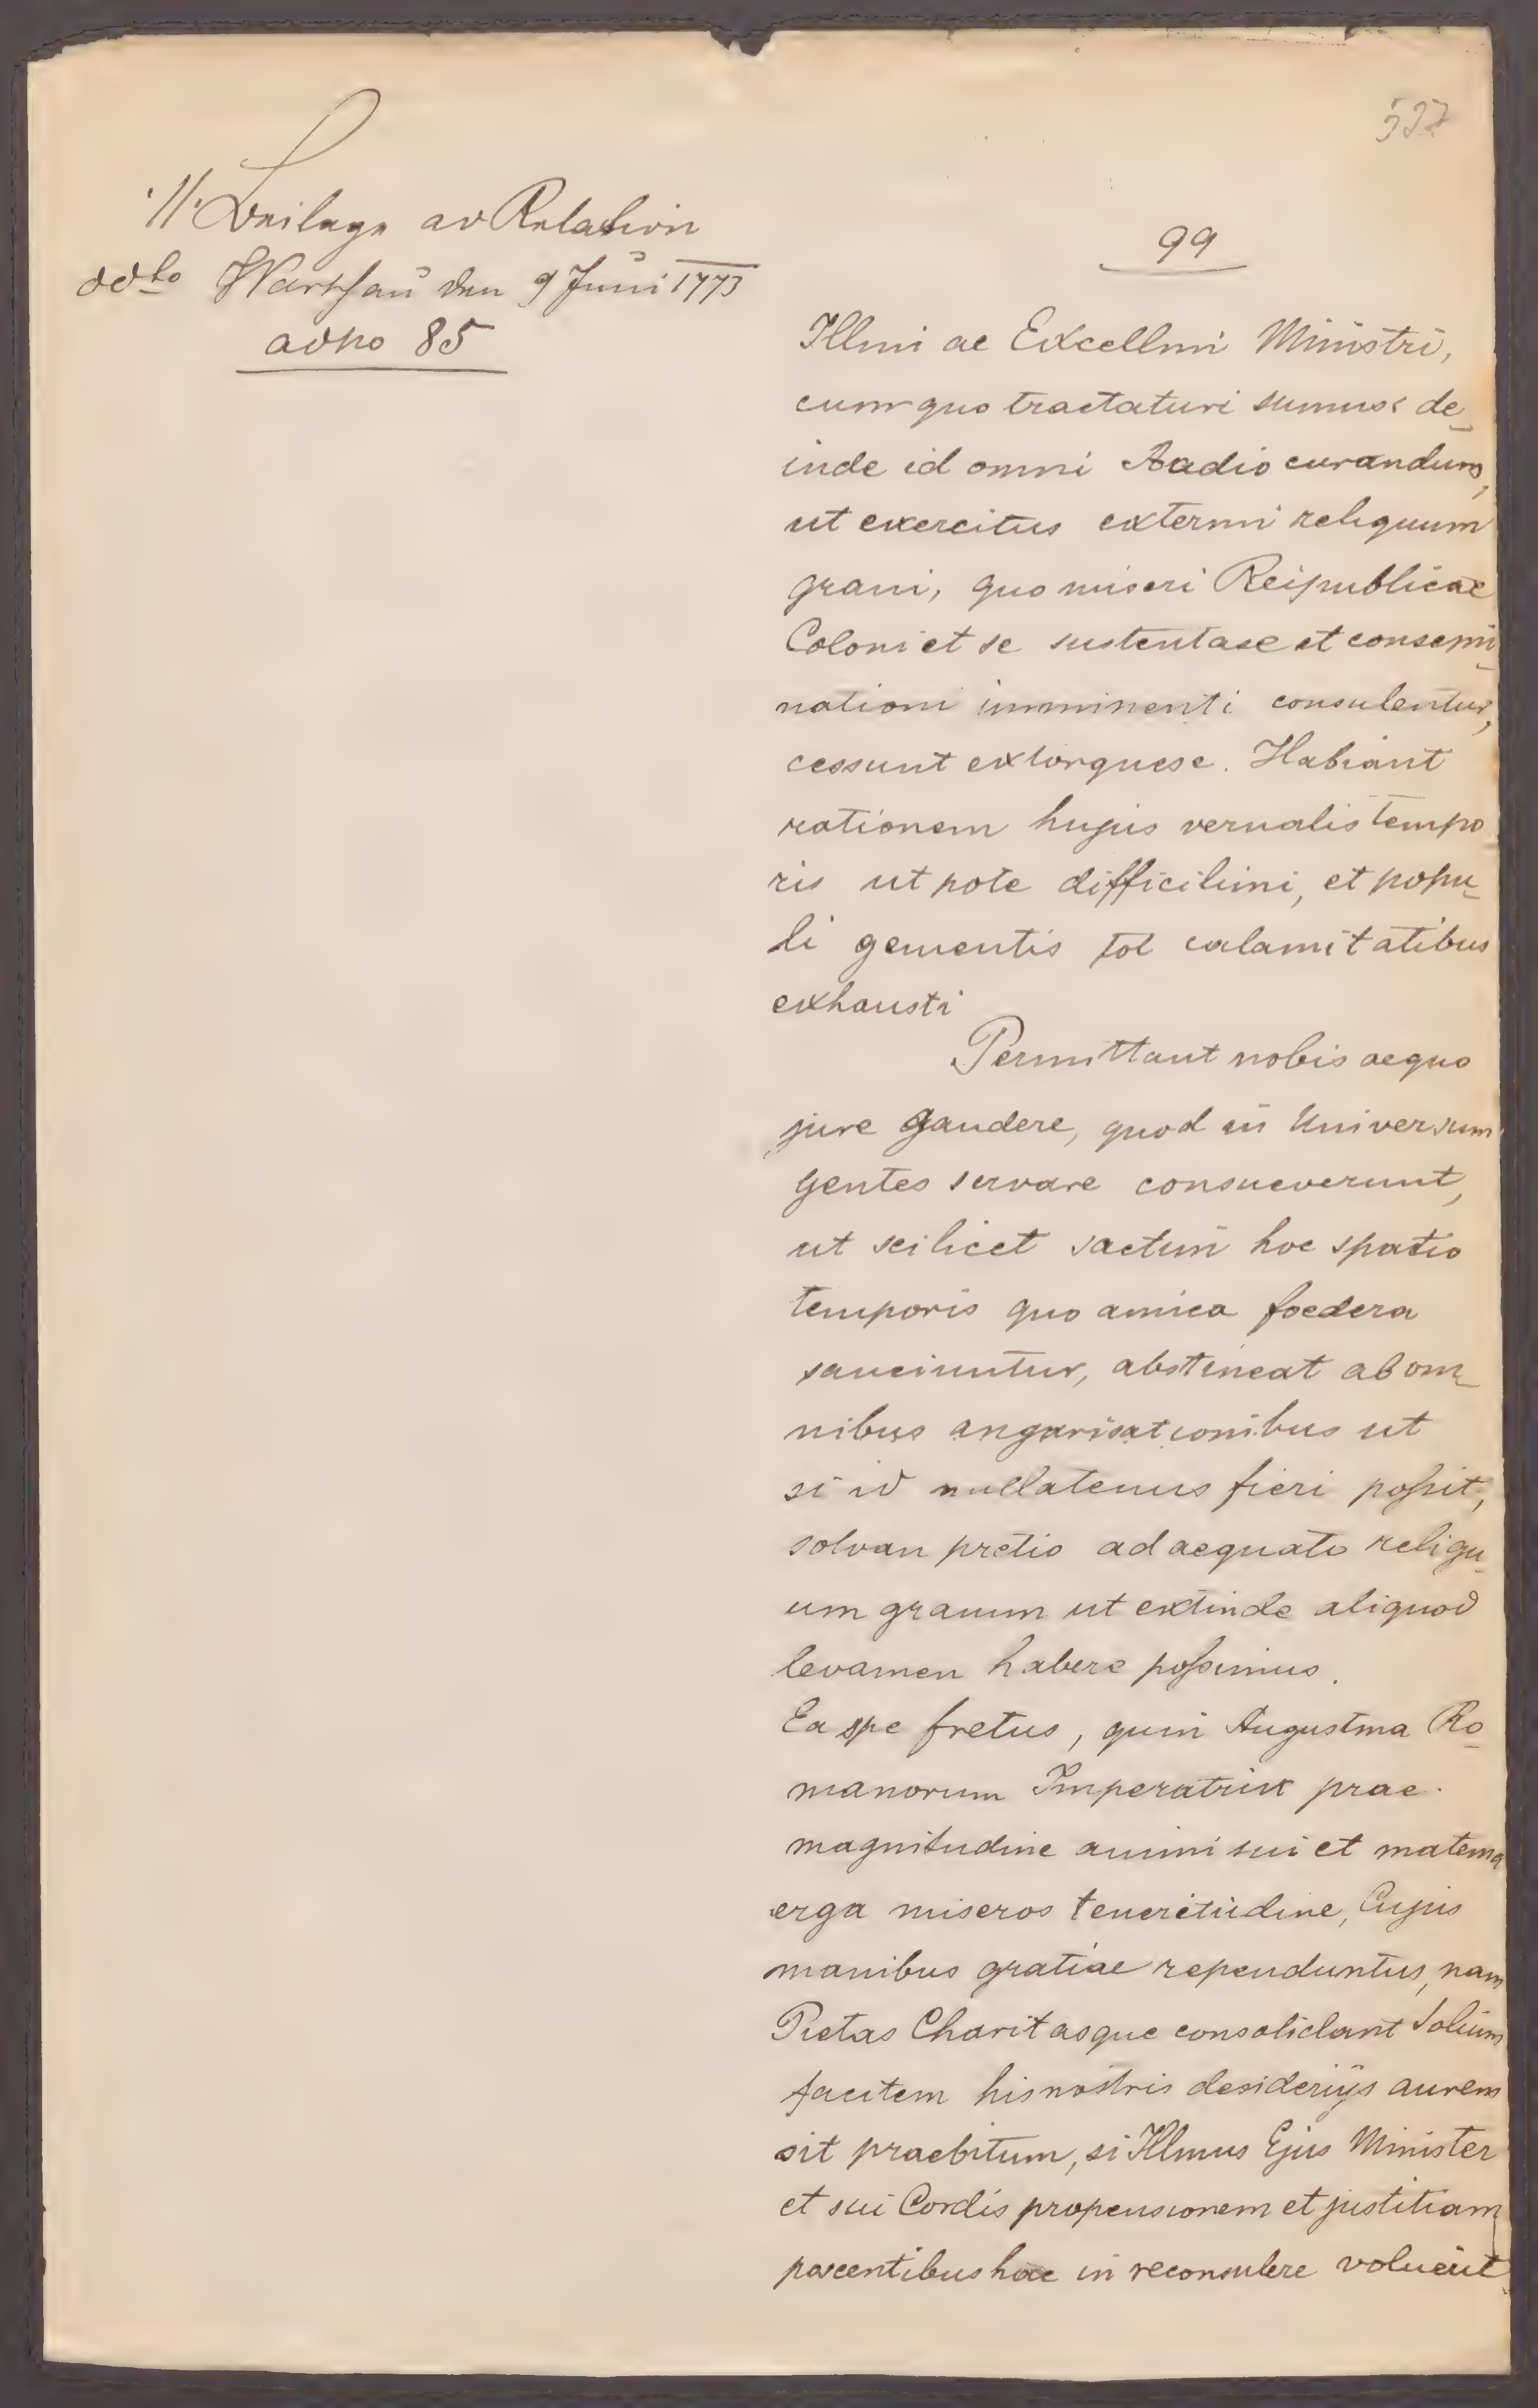 537
·//· Beilage ad Relation
ddto Warschau den 9 Juni 1773
ad No 85
99
Illmi ac Excellmi Ministri,
cum quo tractaturi sumus: de-
inde id omni studio curandum,
ut exercitus externi reliquum
grani, quo miseri Reipublicae
Coloni et se sustentare et consemi-
nationi imminenti consulentur,
cessunt extorquese. Habeant
rationem hujus vernalis tempo
ris ut pote difficilimi, et popu-
li gementis tot calamitatibus
exhausti
Permittant nobis aequo
jure gaudere, quod in Universum
gentes servare consueverunt,
ut scilicet sactim hoc spatio
temporis quo amica foedera
sanciuntur, abstineat ab om-
nibus angarisationibus ut
si id nullatenus fieri possit,
solvan pretio adaequato reliqu-
um granum ut extinde aliquod
levamen habere possimus.
Ea spe fretus, quin Augustma Ro-
manorum Imperatrix prae
magnitudine animi sui et materna
erga miseros teneritudine, Cujus
manibus gratiae rependuntus, nam
Pietas Charitasque consolidant Solium
facitem his nostris desideriys aurem
sit praebitum, si Illmus Ejus Minister
et sui Cordis propensionem et justitiam
poscentibus hac in re consulere voluerit